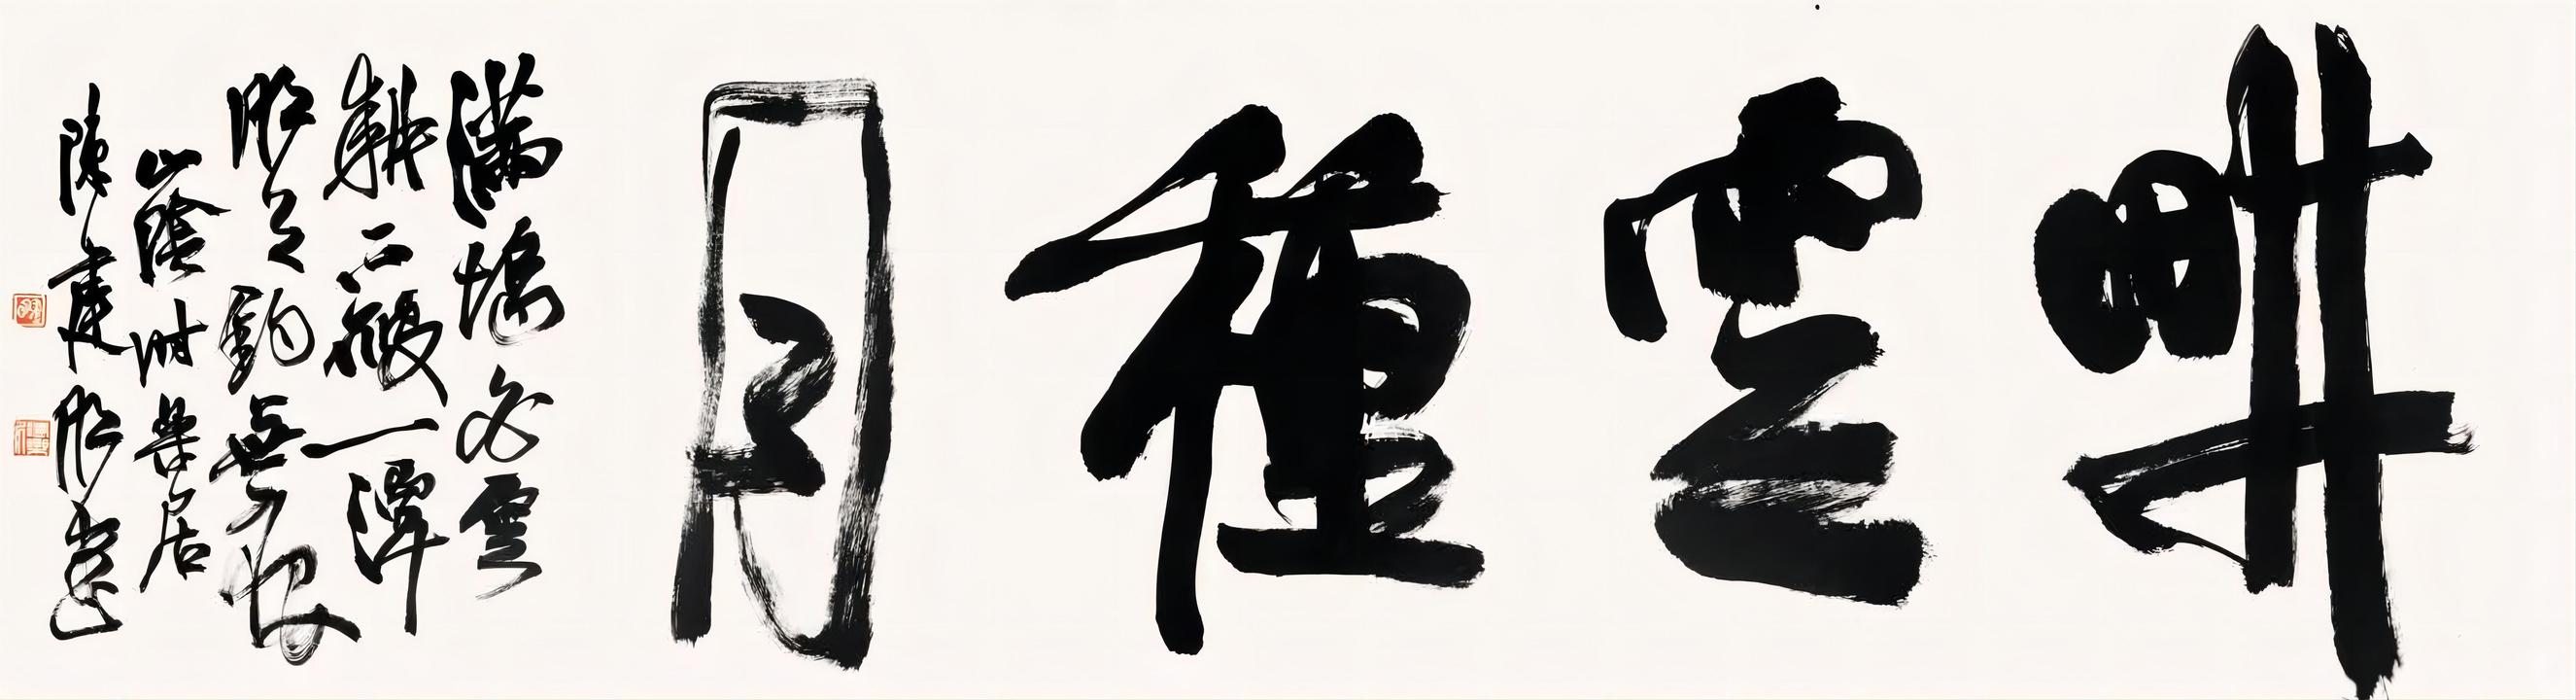 畊雲種月
滿塢白雲
耕不破一潭
明月釣無痕
山陰居
陳建明書